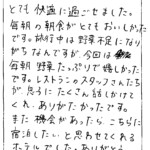 とても快適に過ごせました。
毎朝の朝食がとてもおいしかった
です。旅行中は野菜不足になり
がちなんですが、今回は
毎朝野菜たっぷりで嬉しかった
です。レストランのスタッフさんたち
が気さくにたくさん話しかけて
くれ、ありがたかったです。
また機会があったら、こちらに
宿泊したいと思わせてくれる
ホテルでした。ありがとう